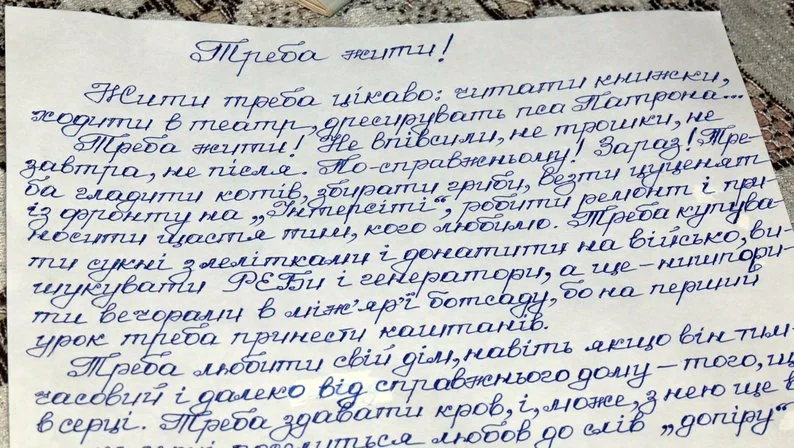 Треба жити!
Жити треба цікаво: читати книжки,
ходити в театр, дресирувать пса Патрона...
Треба жити! Не впівсили, не трошки, не
завтра, не після. По-справжньому! Зараз! Тре-
ба гладити котів, збирати гриби, везти цуценят
із фронту на „Інтерсіті“, робити ремонт і при-
носити щастя тим, кого любимо. Треба купува-
ти сукні з лелітками і донатити на військо, ви-
шукувати РЕБи і генератори, а ще – нишпори-
ти вечорами в між'яр'ї ботсаду, бо на перший
урок треба принести каштанів.
Треба любити свій дім, навіть якщо він тим-
часовий і далеко від справжнього дому – того, щ
в серці. Треба здавати кров, і, може, з нею ще в
любов до слів „допіру“